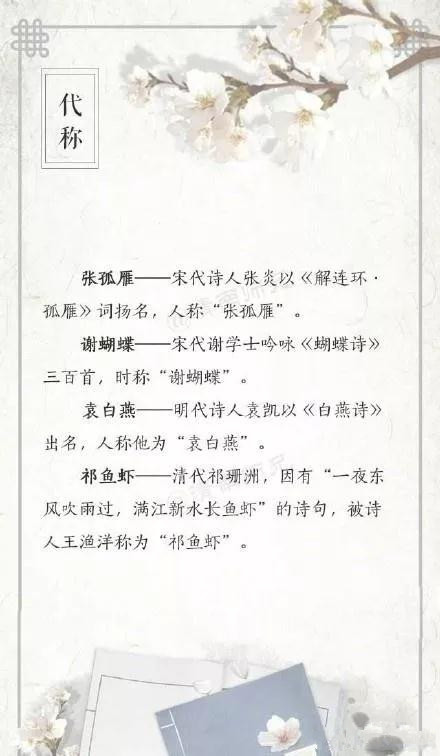 代
称
张孤雁——宋代诗人张炎以《解连环·
孤雁》词扬名，人称“张孤雁”。
谢蝴蝶——宋代谢学士吟咏《蝴蝶诗》
三百首，时称“谢蝴蝶”。
袁白燕——明代诗人袁凯以《白燕诗》
出名，人称他为“袁白燕”。
祁鱼虾——清代祁珊洲，因有“一夜东
风吹雨过，满江新水长鱼虾”的诗句，被诗
人王渔洋称为“祁鱼虾”。